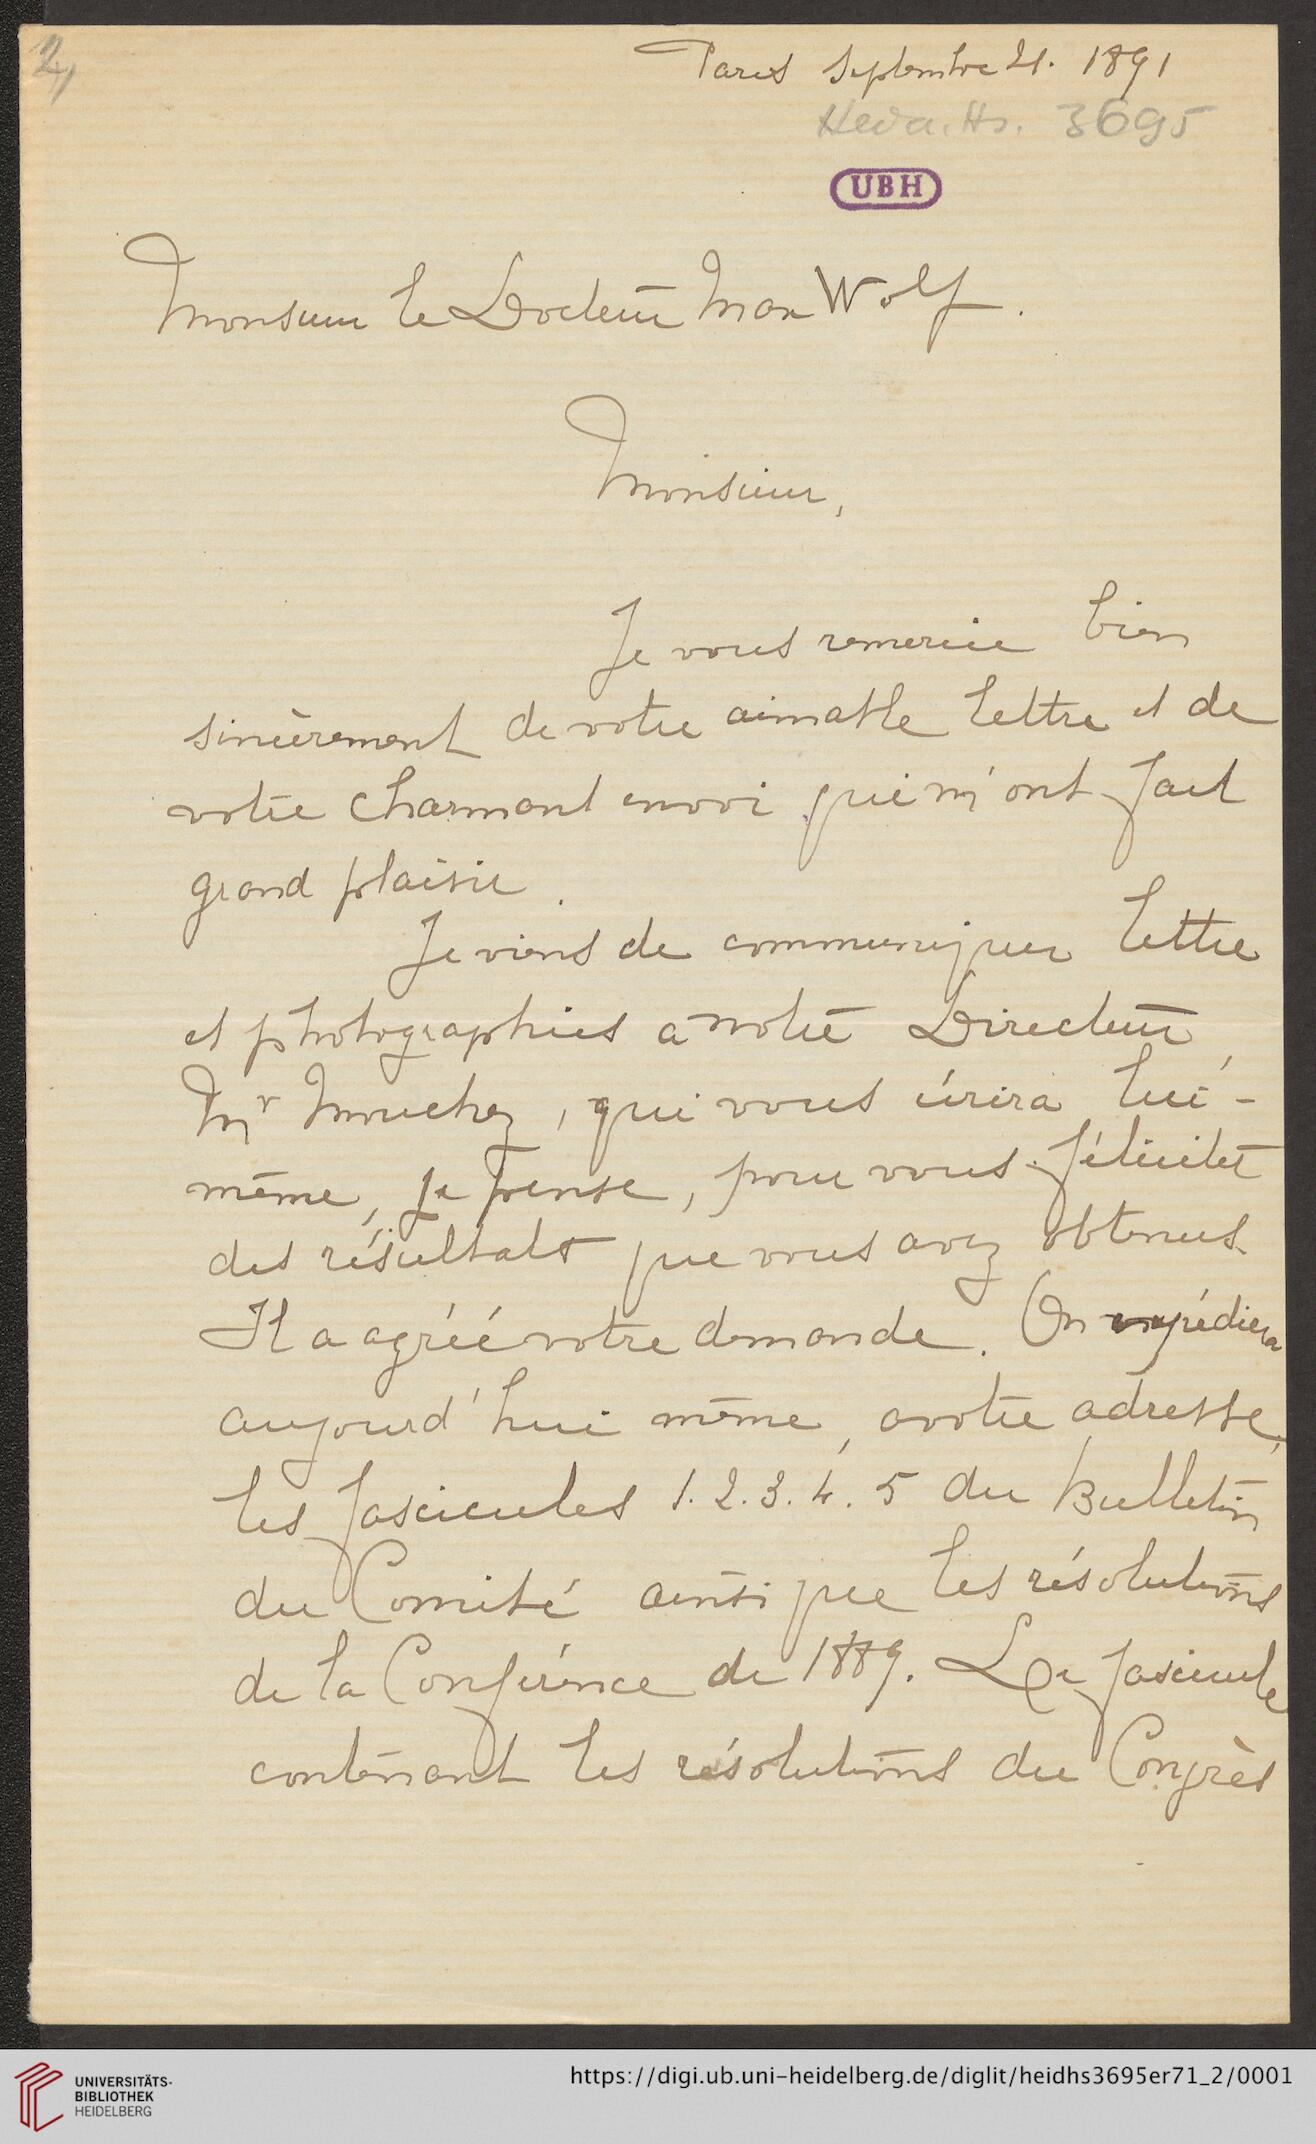 2,
Paris Septembre 21. 1891
Heid. Hs. 3695
UBH
Monsieur le Docteur Max Wolf.
Monsieur,
Je vous remercie bien
sincèrement de votre aimable lettre et de
votre charmant envoi qui m'ont fait
grand plaisir.
Je viens de communiquer lettre
et photographies à notre Directeur,
Mr Mouchez, qui vous écrira lui-
même, je pense, pour vous féliciter
des résultats que vous avez obtenus.
Il a agréé votre demande. On expédiera
aujourd'hui même, à votre adresse,
les fascicules 1. 2. 3. 4. 5 du Bulletin
du Comité ainsi que les résolutions
de la Conférence de 1889. Le fascicule
contenant les résolutions du Congrès
UNIVERSITÄTS-
BIBLIOTHEK
HEIDELBERG
https://digi.ub.uni-heidelberg.de/diglit/heidhs3695er71_2/0001